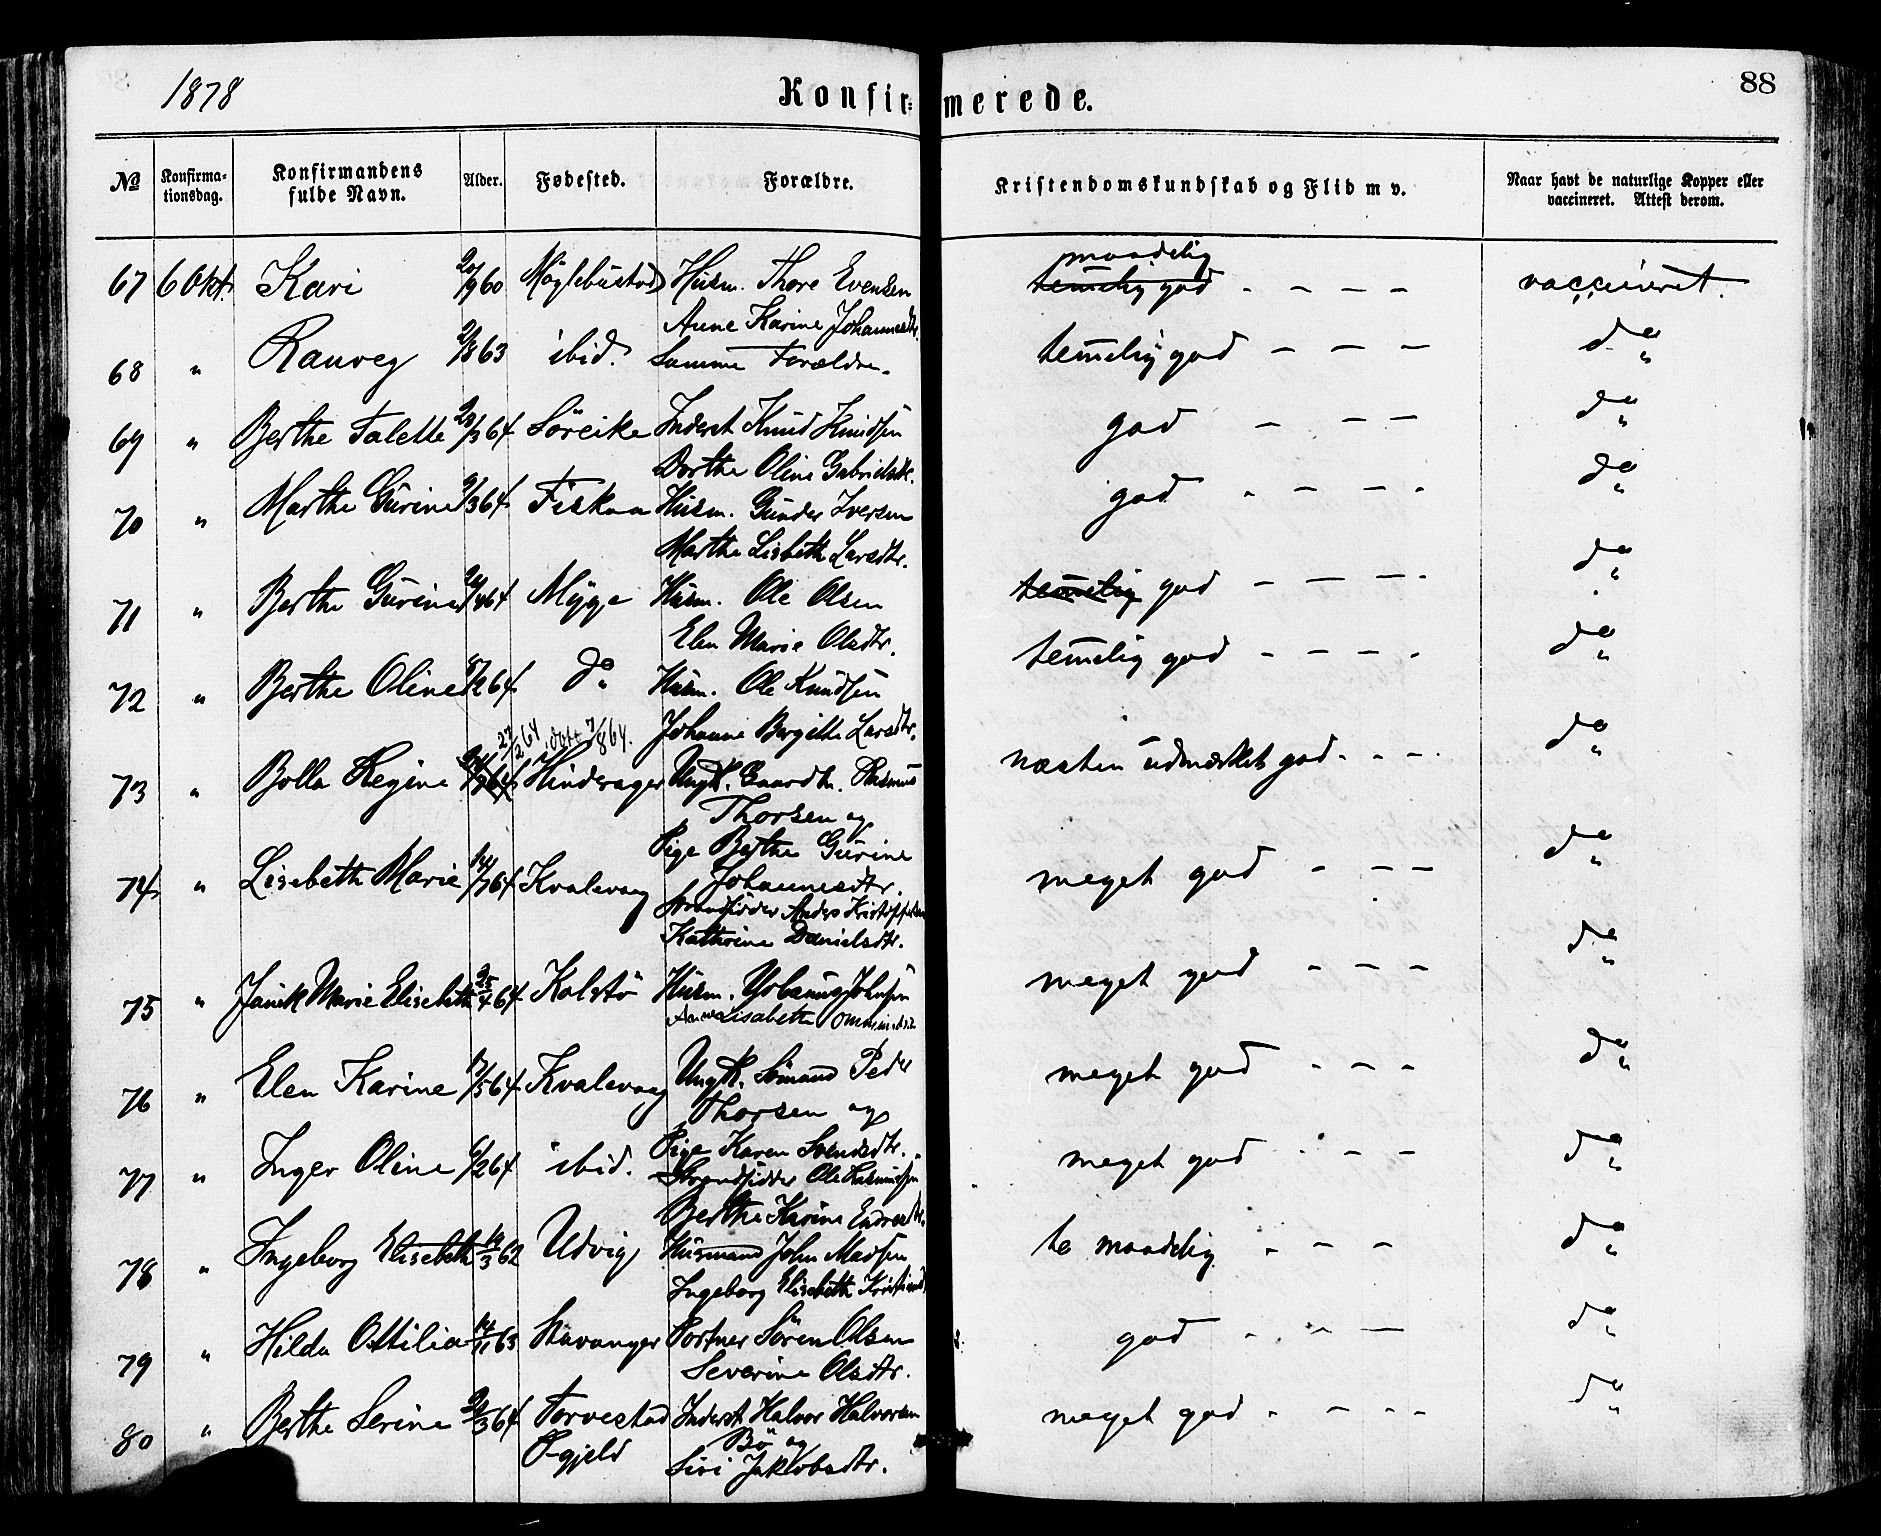 1878
Konfirmerede.
88
No Konfirmationsdag. Konfirmandens fulde Navn. Alder. Fødested. Forældre. Kristendomskundskab og Flid m v. Naar havt de naturlige Kopper eller vaccineret. Attest derom.
67 6 Okt. Kari 20/9 60 Møglebustad Husm. Thore Evensen maadelig temelig god - - - - vaccineret.
Anne Karine Johannesdtr.
68 " Ranveg 2/8 63 ibid. Samme Forældre. temelig god - - - do
69 " Berthe Talette 28/3 64 Söreike Inderst Knud Knudsen god - - - do
Dorthe Oline Gabrielsdtr.
70 " Marthe Gurine 9/3 64 Fiskaa Husm. Gunder Iversen god - - - - do
Marthe Lisbeth Larsdtr.
71 " Berthe Gurine /4 64 Mygge Husm. Ole Olsen temelig god - - - - do
Elen Marie Olsdtr.
72 " Berthe Oline /2 64 do Husm. Ole Knudsen temelig god - - - - do
27/2 64 döbt 7/8 64.
Johanne Bergitte Larsdtr.
73 " Bolla Regine Hindrager Ungk. Gaardbr. Rasmus næsten udmærket god - - - do
Thorsen og
Pige Berthe Gurine
74 " Lisebeth Marie 14/7 64 Kvalevaag Johannesdtr. meget god - - - do
Strandsidder Anders Kristoffersen
Kathrine Danielsdtr.
75 " Janik Marie Elisebeth 25/4 64 Kolstö Husm. Johnsen meget god - - - do
Anne Lisabeth Ommundsdtr
76 " Elen Karine 13/5 64 Kvalevaag Ungk. Sömand Peder meget god - - - do
Thorsen og
Pige Karen Svendsdtr.
77 " Inger Oline 6/2 64 ibid. Strandsidder Ole Rasmussen meget god - - - do
Berthe Karine Endresdtr.
78 " Ingeborg Elisebeth /3 62 Udvig Husmand John Madsen te maadelig - - - do
Ingeborg Elisebeth
79 " Hilda Ottilia 14/11 63 Stavanger Portner Sören Olsen god - - - do
Severine Olsdtr.
80 " Berthe Serine /3 64 Torvestad Inderst Halvor Halvorsen meget god - - - - do
P-gjeld Bö og
Siri Jakobsdtr.